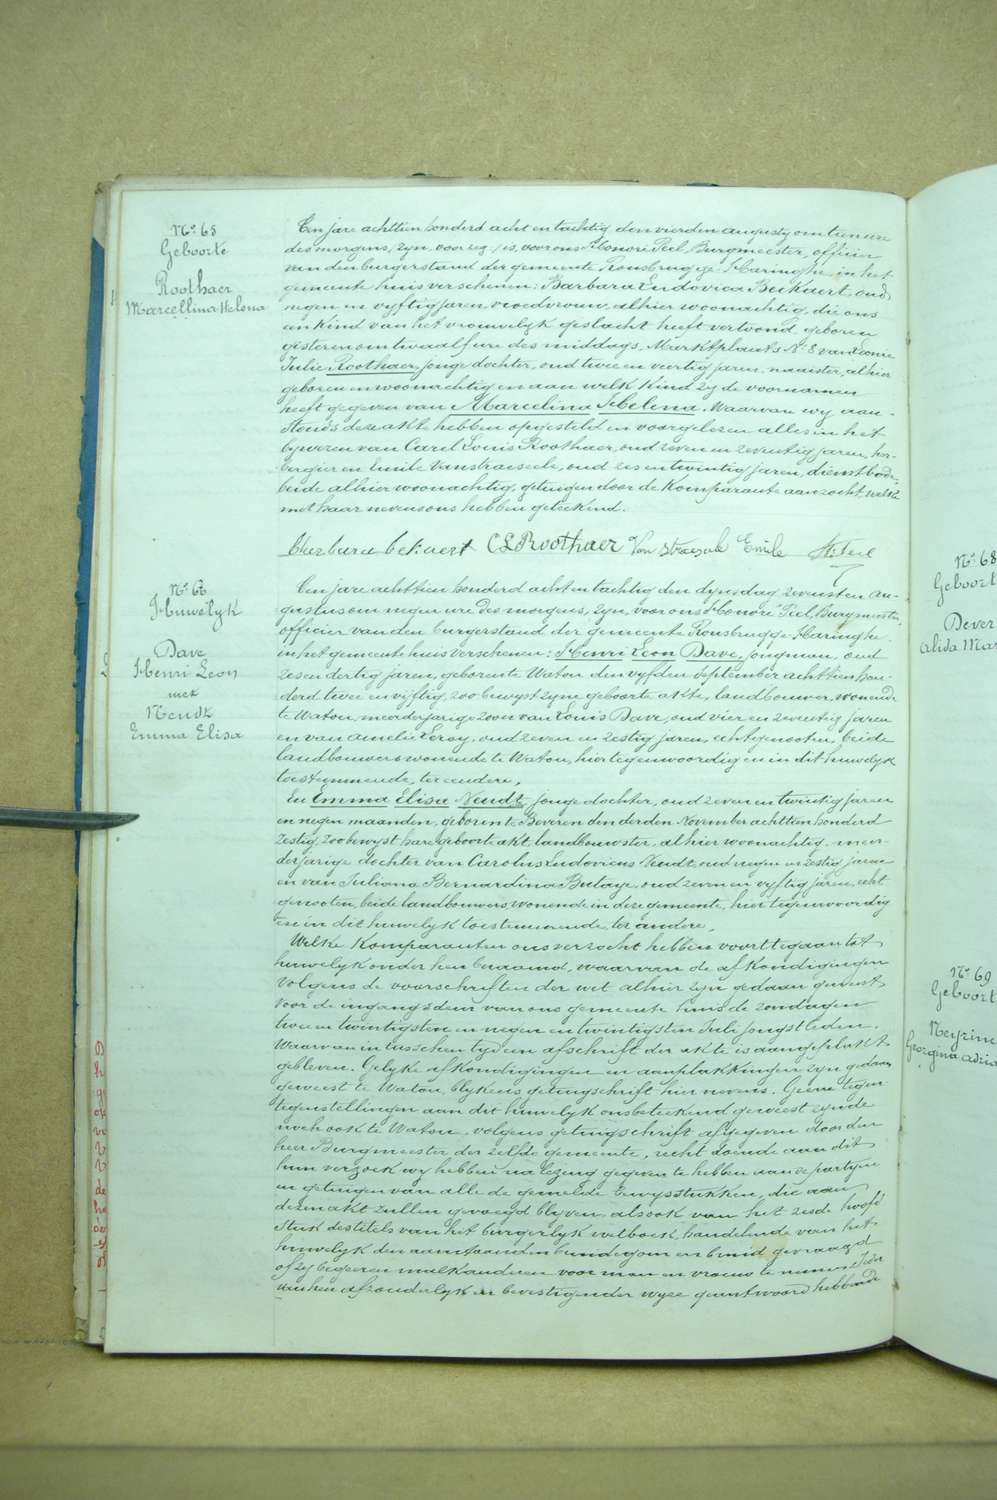 N° 65
Geboorte
Roothaer
Marcellina Helena
Ten jare achttien honderd acht en tachtig den vierden augusty om tien ure
des morgens, zyn, voor ons Honoré Teel, Burgmeester, officier
van den burgerstand der gemeente Rousbrugge-Haringhe in het
gemeente huis verschenen: Barbara Ludovica Bekaert, oud
negen en vyftig jaren, vroedvrouw, alhier woonachtig, die ons
een kind van het vrouwelyk geslacht heeft vertoond, geboren
gisteren om twaalf ure des middags, Marktplaats N° 8 van Leonie
Julie Roothaer, jonge dochter, oud twee en veertig jaren, naaister, alhier
geboren en woonachtig en aan welk kind zy de voornamen
heeft gegeven van Marcelina Helena. Waarvan wy aan-
stonds deze akte hebben opgesteld en voorgelezen alles in het
bywezen van Carel Louis Roothaer, oud zeven en zeventig jaren, her-
bergier en Emile Vanstraeseele, oud zes en twintig jaren, dienstbode,
beide alhier woonachtig, getuigen door de komparante aanzocht, welke
met haar nevens ons hebben geteekend.
Barbara bekaert C L Roothaer Van Straesele Emile H. Teel
N° 66
Huwelyk
Dave
Henri Leon
met
Neudt
Emma Elisa
Ten jare achttien honderd acht en tachtig den dynsdag zevensten au-
gustus om negen ure des morgens, zyn, voor ons Honoré Teel, Burgmeester,
officier van den burgerstand der gemeente Rousbrugge-Haringhe
in het gemeente huis verschenen: Henri Leon Dave, jongman, oud
zes en dertig jaren, geboren te Watou den vyfden September achttien hon-
derd twee en vyftig, zoo bewyst zyne geboorte akte, landbouwer, wonende
te Watou, meerderjarige zoon van Louis Dave, oud vier en zeventig jaren
en van Amelie Leroy, oud zeven en zestig jaren, echtgenooten, beide
landbouwers wonende te Watou, hier tegenwoordig en in dit huwelyk
toestemmende, ter eendere,
En Emma Elisa Neudt, jonge dochter, oud zeven en twintig jaren
en negen maanden, geboren te Beveren den derden November achttien honderd
zestig, zoo bewyst hare geboorte akt, landbouwster, alhier woonachtig, meer-
derjarige dochter van Carolus Ludovicus Neudt, oud negen en zestig jaren
en van Juliana Bernardina Butaye, oud zeven en vyftig jaren, echt
genooten, beide landbouwers, wonende in deze gemeente, hier tegenwoordig
en in dit huwelyk toestemmende, ter andere,
Welke komparanten ons verzocht hebben voort te gaan tot
huwelyk onder hen beraamd, waarvan de afkondigingen
volgens de voorschriften der wet alhier zyn gedaan geweest
voor de ingangsdeur van ons gemeente huis de zondagen
twee en twintigsten en negen en twintigsten Juli jongstleden.
Waarvan intusschen tyd een afschrift der akte is aangeplakt
gebleven. Gelyke afkondigingen en aanplakkingen zyn gedaan
geweest te Watou, blykens getuigschrift hier nevens. Geene tegen
tegenstellingen aan dit huwelyk ons beteekend geweest zynde
noch ook te Watou, volgens getuigschrift afgegeven door den
heer Burgmeester der zelfde gemeente, recht doende aan dit
hun verzoek wy hebben na lezing gegeven te hebben aan de partyen
en getuigen van alle de gemelde bewysstukken, die aan
dezen akt zullen gevoegd blyven, alsook van het zesde hoofd
stuk des titels van het burgerlyk wetboek, handelende van het
huwelyk den aanstaanden bruidegom en bruid gevraagd
of zy begeeren malkanderen voor man en vrouw te nemen. Ieder
van hen afzonderlyk in bevestigender wyze geantwoord hebbende
N° 68
Geboort
Dever
Alida Mar
N° 69
Geboort
Neyrinc
Georgina Adria